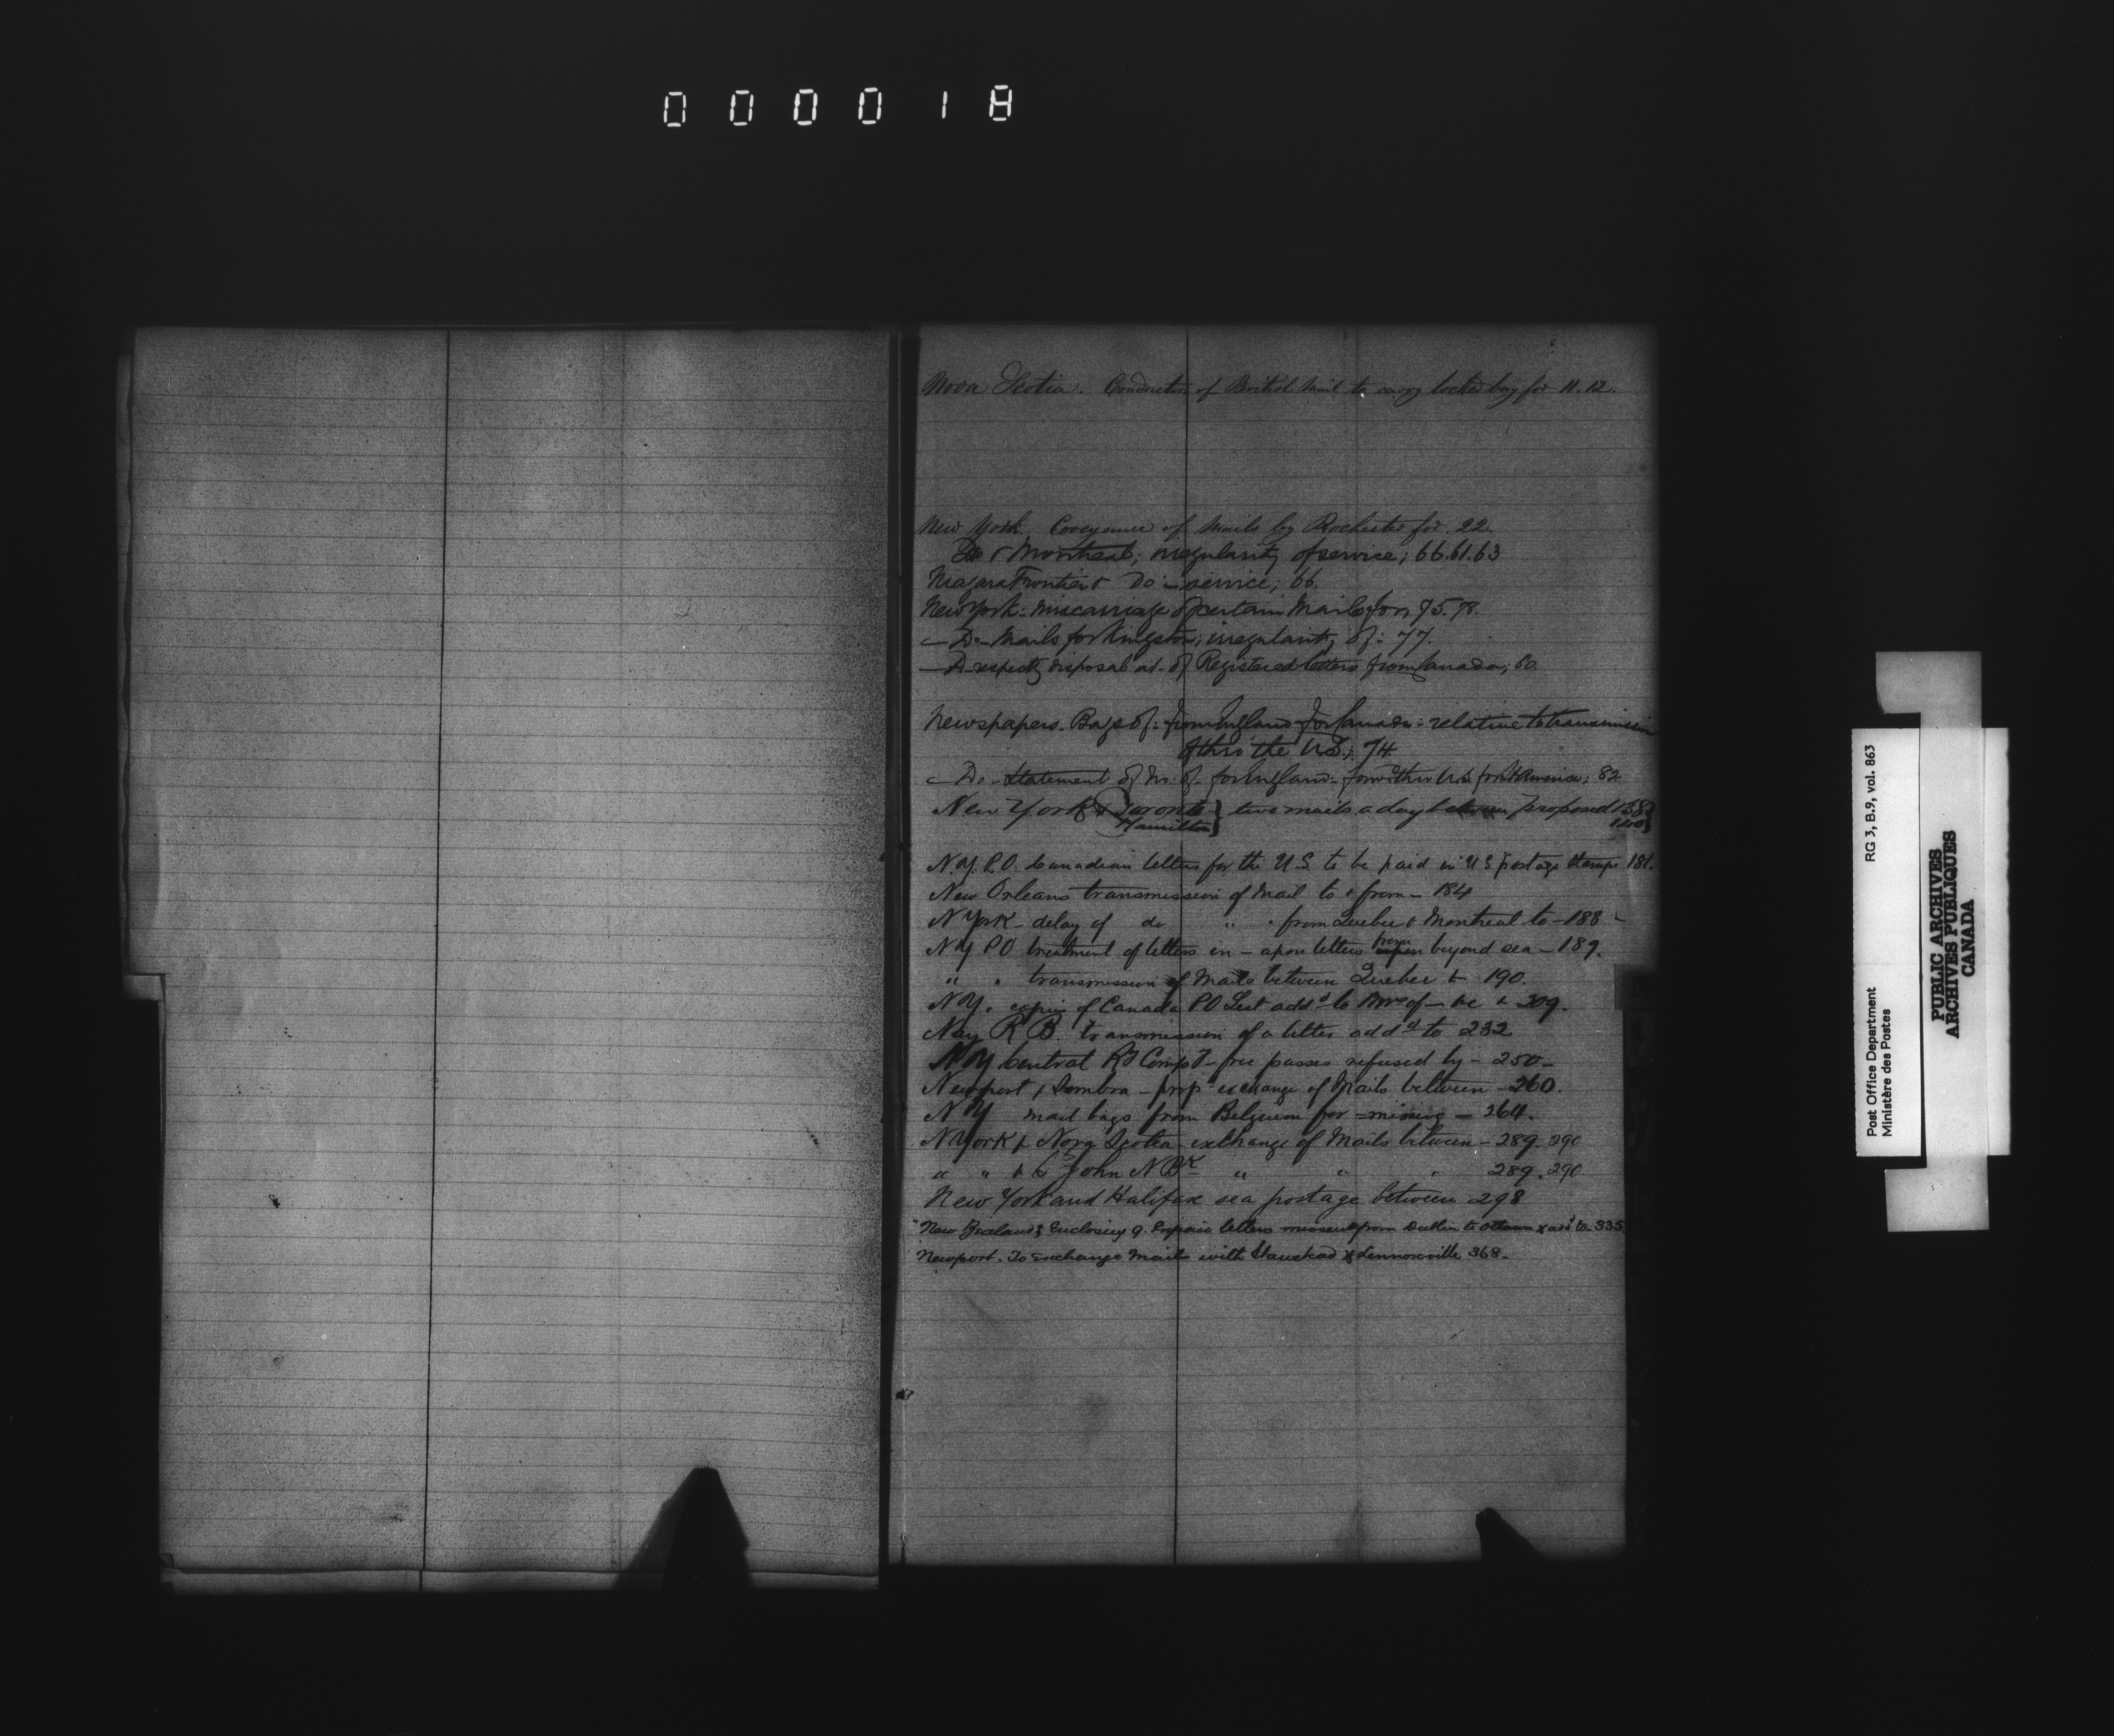 000018
Nova Scotia. Conductor of British Mail to carry locked bag for 11.12.
New York. Coveyance of Mails by Rochester for. 22.
Do & Montreal; irregularity of service; 66.61.63
Niagara Frontier & Do - service; 66.
New York: miscarriage of certain Mails for, 75.78.
- Do - Mails for Kingston; irregularity of: 77.
- D respectg disposal at. of Registered letters from Canada; 80.
Newspapers. Bags of: from England for Canada: relative to transmission
of thro' the U.S.; 74
- Do - Statement of No: of - for England - forwd thro U.S. for America; 82
New York & Toronto } two mails a day between proposed 138 }
Hamilton } 140 }
N.Y. P.O. Canadian letters for the U.S. to be paid in U S postage stamps 181.
New Orleans transmission of Mail to & from - 184
N York - delay of do " " from Quebec & Montreal to - 188 -
N Y P O treatment of letters in - upon letters from beyond sea - 189.
" " transmission of Mails between Quebec & 190.
N.Y. copies of Canada P O List addd to of - &c & 209.
Nay R B. transmission of a letter addd to 232
N Y Central Rd Compy - free passes refused by - 250 -
Newport & Sombra - propd exchange of Mails between - 260.
N Y mail bags from Belgium for - missing - 264.
N York & Nova Scotia - exchange of Mails between - 289. 290
" " & St John N Bk " " " 289. 290
New York and Halifax sea postage between 298
" New Zealand; Enclosing 9. letters missent from Dublin to Ottawa & add to. 335
Newport. To Exchange Mails with Stanstead & Lennoxville 368.
RG 3, B.9, vol. 863
Post Office Department
Ministère des Postes
PUBLIC ARCHIVES
ARCHIVES PUBLIQUES
CANADA